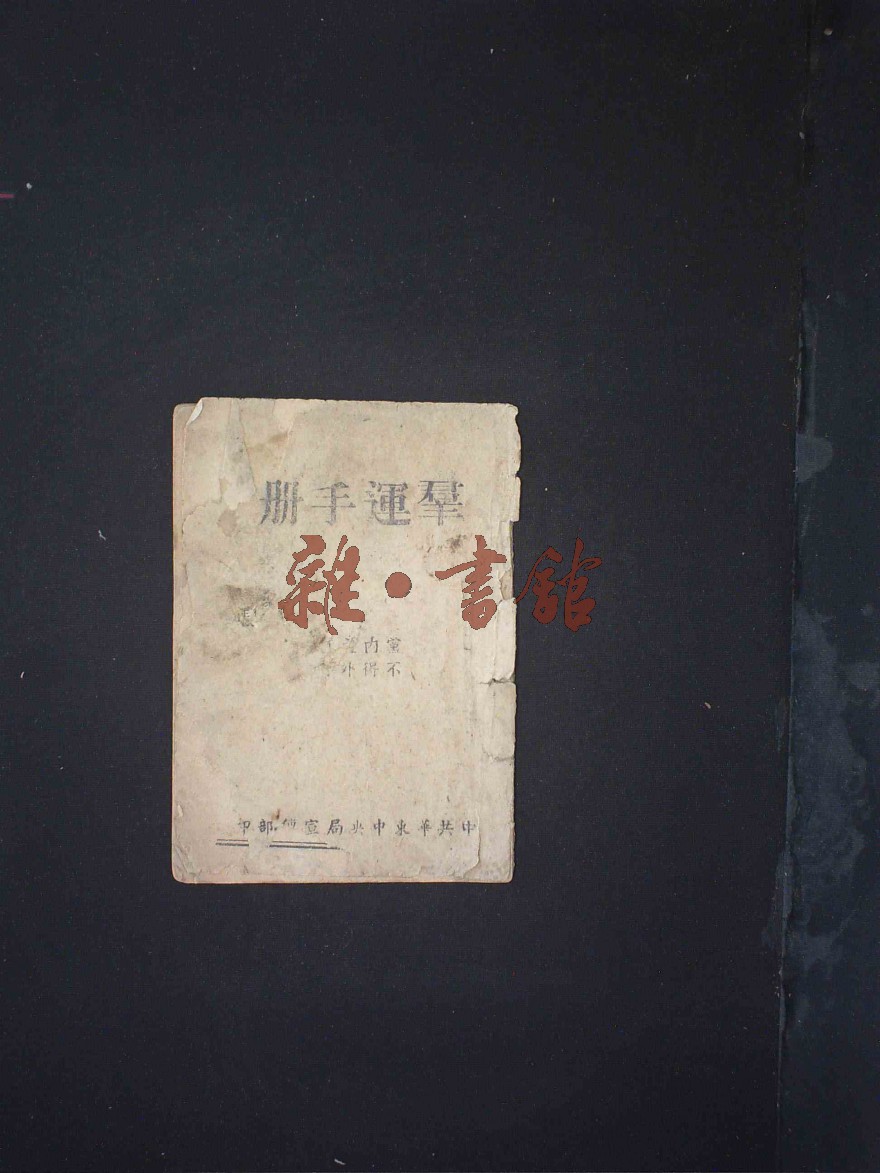 羣運手册
雜•書館
黨內
不得外
中共華東中央局宣傳部印